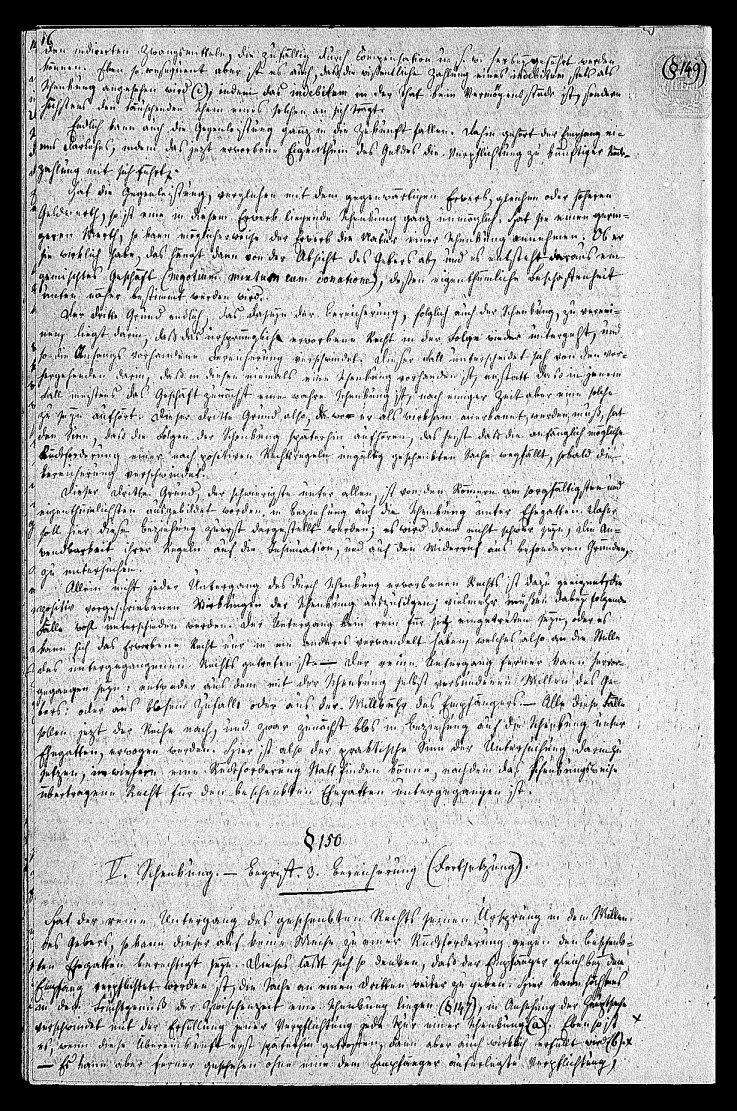 16
den indirecten Zwangsmitteln, die zufällig durch Compensation u. s. w. herbeygeführt werden
können. Eben so consequent aber ist es auch, daß die wissentliche Zahlung eines indebitum stets als
Schenkung angesehen wird (i), indem das indebitum in der That kein Vermögensstück ist, sondern
höchstens den täuschenden Schein eines solchen an sich trägt.
Endlich kann auch die Gegenleistung ganz in die Zukunft fallen. Dahin gehört der Empfang ei-
nes Darlehens, indem das jetzt erworbene Eigenthum des Geldes die Verpflichtung zu künftiger Rück-
zahlung mit sich führt.
Hat die Gegenleistung, verglichen mit dem gegenwärtigen Erwerb, gleichen oder höheren
Geldwerth, so ist eine in diesem Erwerb liegende Schenkung ganz unmöglich. Hat sie einen gerin-
geren Werth, so kann möglicherweise der Erwerb die Natur einer Schenkung annehmen. Ob er
sie wirklich habe, das hängt dann von der Absicht des Gebers ab, und es entsteht daraus ein
gemischtes Geschäft (negotium mixtum cum donatione), dessen eigenthümliche Beschaffenheit
unten näher bestimmt werden wird.
Der dritte Grund endlich, das Daseyn der Bereicherung, folglich auch der Schenkung, zu vernei-
nen, liegt darin, daß das ursprünglich erworbene Recht in der Folge wieder untergeht, und
so die Anfangs vorhandene Bereicherung verschwindet. Dieser Fall unterscheidet sich von den vor-
hergehenden darin, daß in diesen niemals eine Schenkung vorhanden ist, anstatt daß in jenem
Fall meistens das Geschäft zunächst eine wahre Schenkung ist, nach einiger Zeit aber eine solche
zu seyn aufhört. Dieser dritte Grund also, wo er als wirksam anerkannt werden muß, hat
den Sinn, daß die Folgen der Schenkung späterhin aufhören, das heißt daß die anfänglich mögliche
Rückforderung einer nach positiven Rechtsregeln ungültig geschenkten Sache wegfällt, sobald die
Bereicherung verschwindet.
Dieser dritte Grund, der schwierigste unter allen, ist von den Römern am sorgfältigsten und
eigenthümlichsten ausgebildet worden in Beziehung auf die Schenkung unter Ehegatten. Daher
soll hier diese Beziehung zuerst dargestellt werden; es wird dann nicht schwer seyn, die An-
wendbarkeit ihrer Regeln auf die Insinuation, und auf den Widerruf aus besonderen Gründen,
zu untersuchen.
Allein nicht jeder Untergang des durch Schenkung erworbenen Rechts ist dazu geeignet, die
positiv vorgeschriebenen Wirkungen der Schenkung auszutilgen; vielmehr müssen dabey folgende
Fälle wohl unterschieden werden. Der Untergang kann rein für sich eingetreten seyn, oder es
kann sich das erworbene Recht nur in ein anderes verwandelt haben, welches also an die Stelle
des untergegangenen Rechts getreten ist. — Der reine Untergang ferner kann hervor-
gegangen seyn: entweder aus dem mit der Schenkung selbst verbundenen Willen des Ge-
bers: oder aus bloßem Zufall: oder aus der Willkühr des Empfängers. — Alle diese Fälle
sollen jetzt der Reihe nach, und zwar zunächst blos in Beziehung auf die Schenkung unter
Ehegatten, erwogen werden. Hier ist also der praktische Sinn der Untersuchung darin zu
setzen, inwiefern eine Rückforderung statt finden könne, nachdem das schenkungsweise
übertragene Recht für den beschenkten Ehegatten untergegangen ist.
§ 150
V. Schenkung. — Begriff. 3. Bereicherung (Fortsetzung).
Hat der reine Untergang des geschenkten Rechts seinen Ursprung in dem Willen
des Gebers, so kann dieser auf keine Weise zu einer Rückforderung gegen den beschenk-
ten Ehegatten berechtigt seyn. Dieses läßt sich so denken, daß der Empfänger gleich bey dem
Empfang verpflichtet worden ist, die Sache an einen Dritten weiter zu geben. Hier kann höchstens
in dem Fruchtgenuß der Zwischenzeit eine Schenkung liegen (§ 147), in Ansehung der Hauptsache
verschwindet mit der Erfüllung jener Verpflichtung jede Spur einer Schenkung (a). Eben so ist
es, wenn diese Übereinkunft erst späterhin getroffen, dann aber auch wirklich erfüllt wird (b).
— Es kann aber ferner geschehen ohne eine dem Empfänger auferlegte Verpflichtung,
(§ 149)